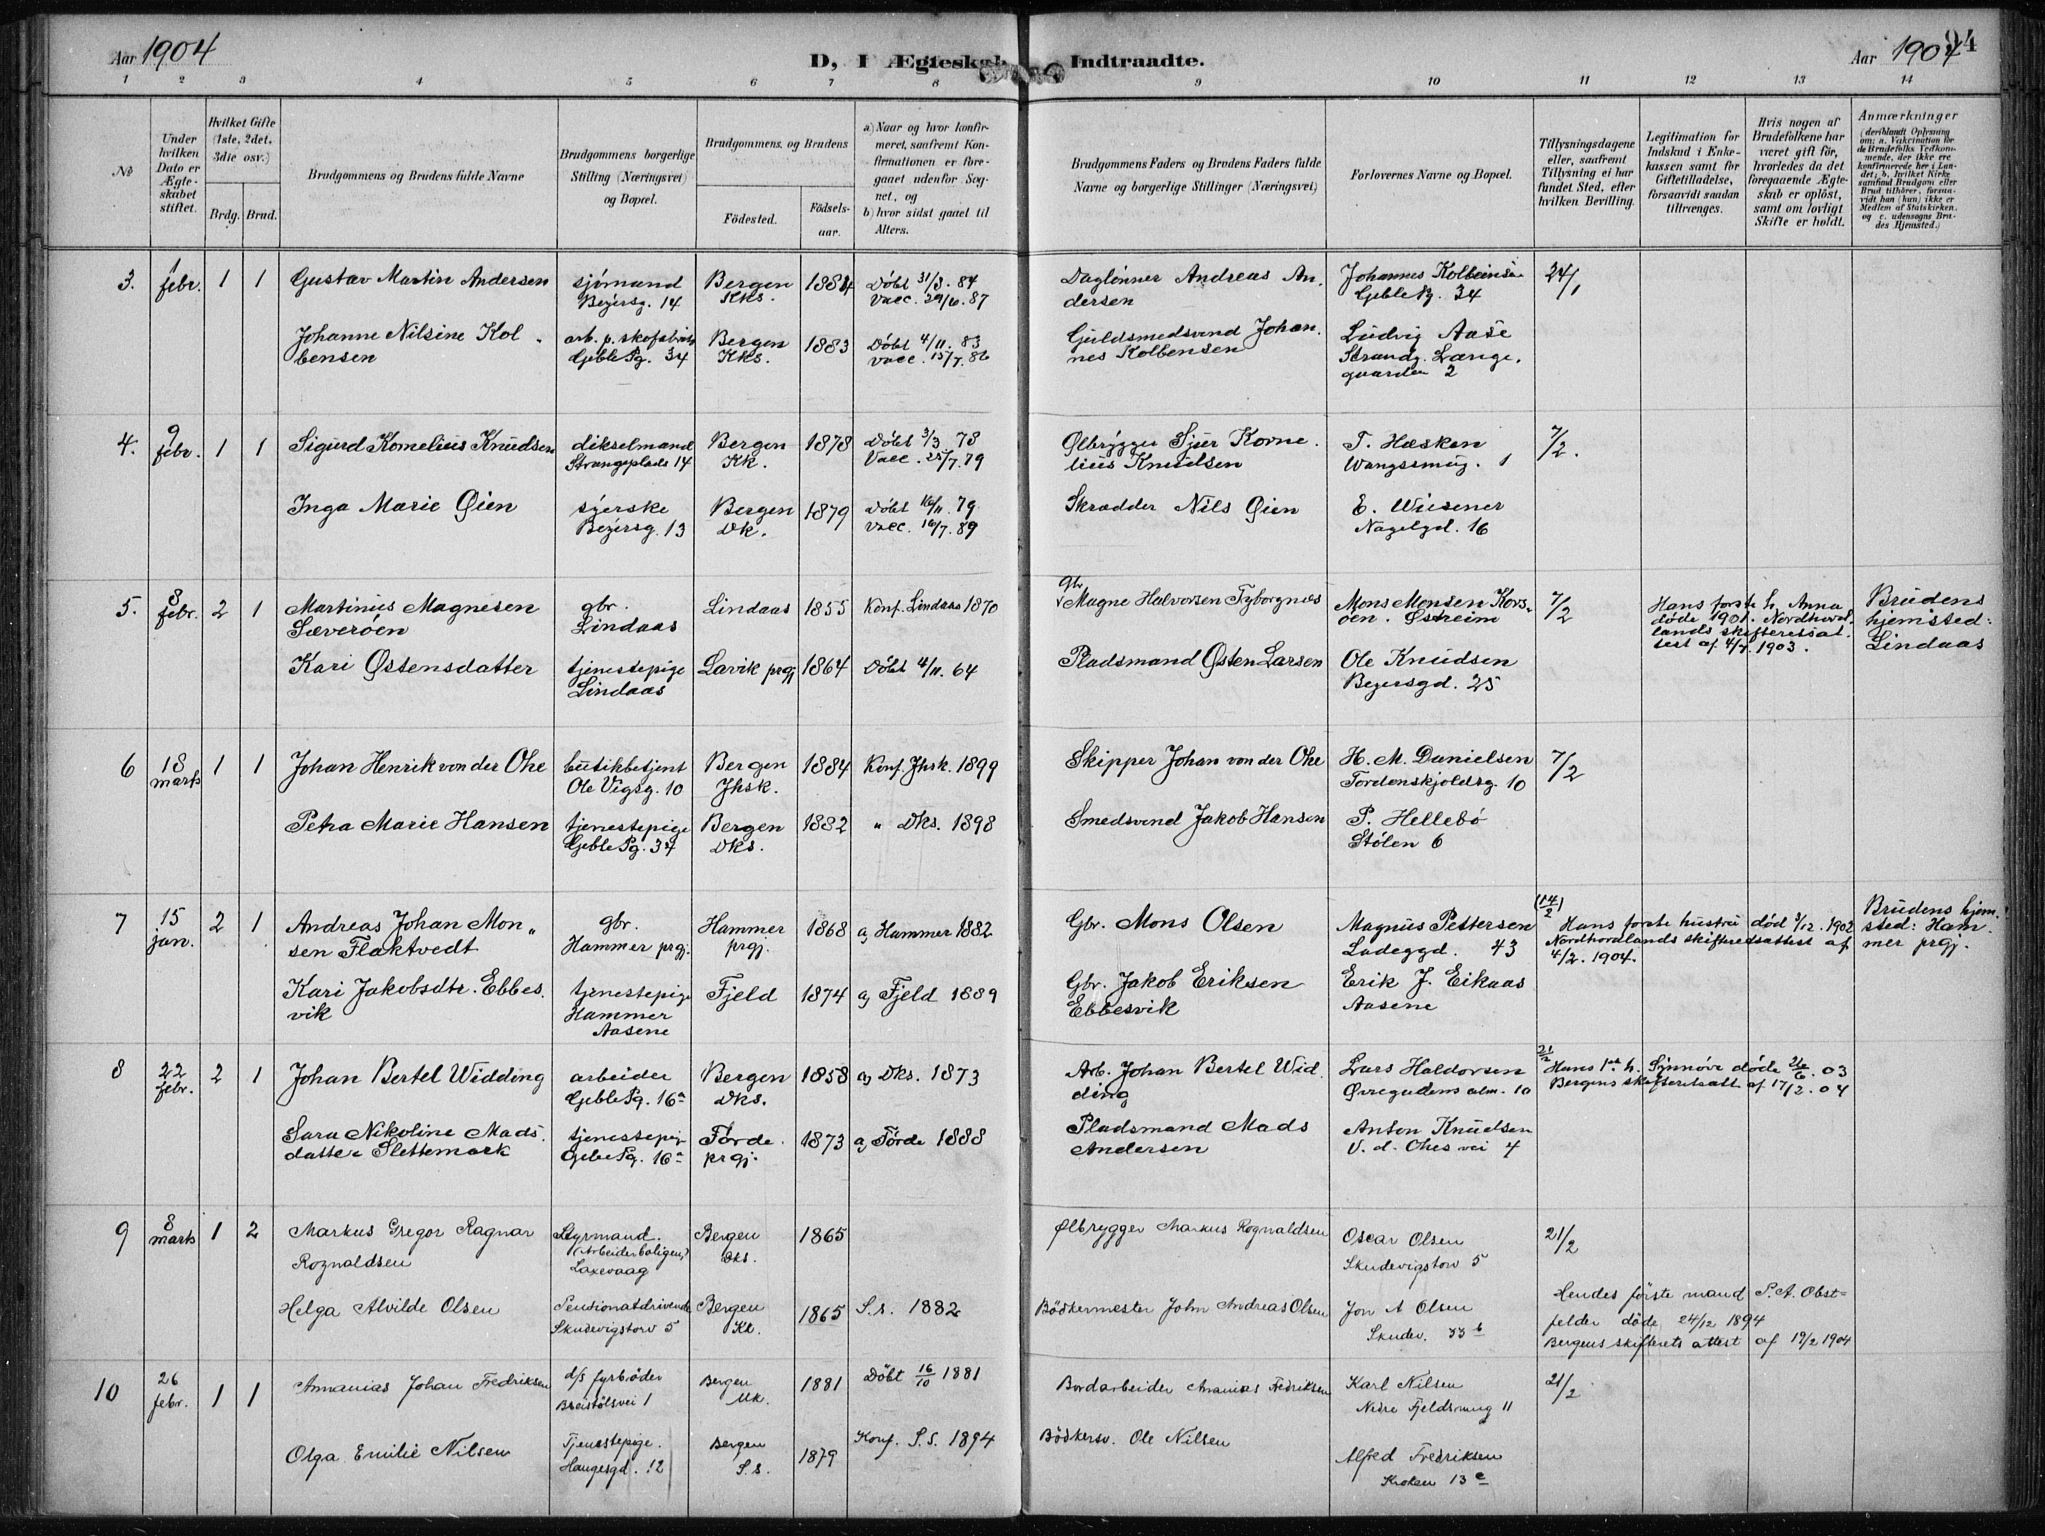 Aar 1904
D, I Ægteskab Indtraadte.
Aar 1904
94
1 2 3 4 5 6 7 8 9 10 11 12 13 14
No
Under hvilken Dato er Ægteskabet stiftet.
Hvilket Gifte (1ste, 2det, 3die osv.)
Brdg. Brud.
Brudgommens og Brudens fulde Navne
Brudgommens borgerlige Stilling (Næringsvei) og Bopæl.
Brudgommens og Brudens
Födested.
Födsels-aar.
a) Naar og hvor konfirmeret, saafremt Konfirmationen er foregaaet udenfor Sognet, og
b) hvor sidst gaaet til Alters.
Brudgommens Faders og Brudens Faders fulde Navne og borgerlige Stillinger (Næringsvei)
Forlovernes Navne og Bopæl.
Tillysningsdagene eller, saafremt Tillysning ei har fundet Sted, efter hvilken Bevilling.
Legitimation for Indskud i Enkekassen samt for Giftetilladelse, forsaavidt saadan tiltrænges.
Hvis nogen af Brudefolkene har været gift för, hvorledes da det foregaaende Ægteskab er oplöst, samt om lovligt Skifte er holdt.
Anmærkninger
(deriblandt Oplysning om: a. Vakcination for de Brudefolks Vedkommende, der ikke ere konfirmerede her i Landet; b. hvilket Kirkesamfund Brudgom eller Brud tilhörer, forsaavidt han (hun) ikke er Medlem af Statskirken, og c. udensogns Brudes Hjemsted.)
3. 1 febr. 1 1 Gustav Martin Andersen sjømand Bezersg. 14 Bergen Kks. 1884 Døbt 31/3. 84 Vacc. 29/6. 87 Daglønner Andreas Andersen Johannes Kolbeinsen Geble Pg. 34 24/1
Johanne Nilsine Kolbensen arb. p. skofabrik Geble Pg. 34 Bergen Kks. 1883 Døbt 4/11. 83 Vacc. 15/7. 86 Guldsmedsvend Johannes Kolbensen Ludvig Aase Strandg. Længeguarden 2
4. 9 febr. 1 1 Sigurd Kornelius Knudsen dikselmand Strangeplads 14 Bergen Kk. 1878 Døbt 3/3 78 Vacc. 25/7. 79 Ølbrygger Sjur Kornelius Knudsen T. Hæsken Wangssmug. 1 7/2.
Inga Marie Øien syerske Bezersg. 13 Bergen Dk. 1879 Døbt 16/11. 79 Vacc. 16/7. 89 Skrædder Nils Øien E. Wiesener Nagelgd. 16
5. 8 febr. 2 1 Martinus Magnesen Sæverøen gbr. Lindaas Lindaas 1855 Konf. Lindaas 1870 gbr Magne Halvorsen Fyborgnæs Mons Monsen Korsøen. Østheim 7/2 Hans første h. Anna døde 1901. Nordhordlands skifteretsattest af 4/7. 1903. Brudens hjemsted: Lindaas
Kari Østensdatter tjenestepige Lindaas Lavik prgj 1864 Døbt 4/11. 64 Pladsmand Østen Larsen Ole Knudsen Bezersgd. 25
6 18 marts 1 1 Johan Henrik von der Ohe butikbetjent Ole Vigsg. 10 Bergen Jhsk. 1884 Konf. Jhsk. 1899 Skipper Johan von der Ohe H. M. Danielsen Tordenskjoldsg. 10 7/2
Petra Marie Hansen tjenestepige Geble Pg. 34 Bergen Dks. 1882 " Dks. 1898 Smedsvend Jakob Hansen P. Hellebø Stølen 6
7 15 jan. 2 1 Andreas Johan Monsen Flaktvedt gbr. Hammer prgj. Hammer prgj. 1868 a) Hammer 1882 Gbr. Mons Olsen Magnus Pettersen Ladeggd. 43 (14/2) Hans første hustru død 3/12. 1902 Nordhordlands skifteretsattest af 4/2. 1904. Brudens hjemsted: Hammer prgj.
Kari Jakobsdtr. Ebbesvik tjenestepige Hammer Aasene Fjeld 1874 a) Fjeld 1889 Gbr. Jakob Eriksen Ebbesvik Erik J. Eikaas Aasene
8 22 febr. 2 1 Johan Bertel Widding arbeider Geble Pg. 16a Bergen Dks. 1858 a) Dks. 1873 Arb. Johan Bertel Widding Lars Haldorsen Øvregadens alm. 10 21/2 Hans 1ste h. Synnøve døde 26/6. 03 Bergens skifteretsatt af 17/2. 04
Sara Nikoline Madsdatter Slettemark tjenestepig Geble Pg. 16a Førde prgj. 1873 a) Førde 1888 Pladsmand Mads Andersen Anton Knudsen V. d. Ohes vei 4
9 8 marts 1 2 Markus Gregor Ragnar Rognaldsen Styrmand. (Arbeiderboligen) Laxevaag Bergen Dks. 1865 Ølbrygger Markus Rognaldsen Oscar Olsen Skudevigstorv 5 21/2
Helga Alvilde Olsen Pensionatdrivende Skudevigstorv 5 Bergen Kk. 1865 S.s. 1882 Bödkermester John Andreas Olsen Jon A Olsen Skudev. 33b Hendes første mand P. A. Obstfelder døde 24/12 1894 Bergens skifterets attest af 19/2 1904
10 26 febr. 1 1 Annanias Johan Fredriksen d/s fyrbøder Breistølsvei 1 Bergen Mk. 1881 Döbt 16/10 1881 Bordarbeider Ananias Fredriksen Karl Nilsen Nedre Fjeldsmug 11 21/2
Olga Emilie Nilsen Tjenestepige. Haugesgd. 12 Bergen S.s. 1879 Konf. S.s. 1894 Bödkersv. Ole Nilsen Alfred Fredriksen Kroken 13c